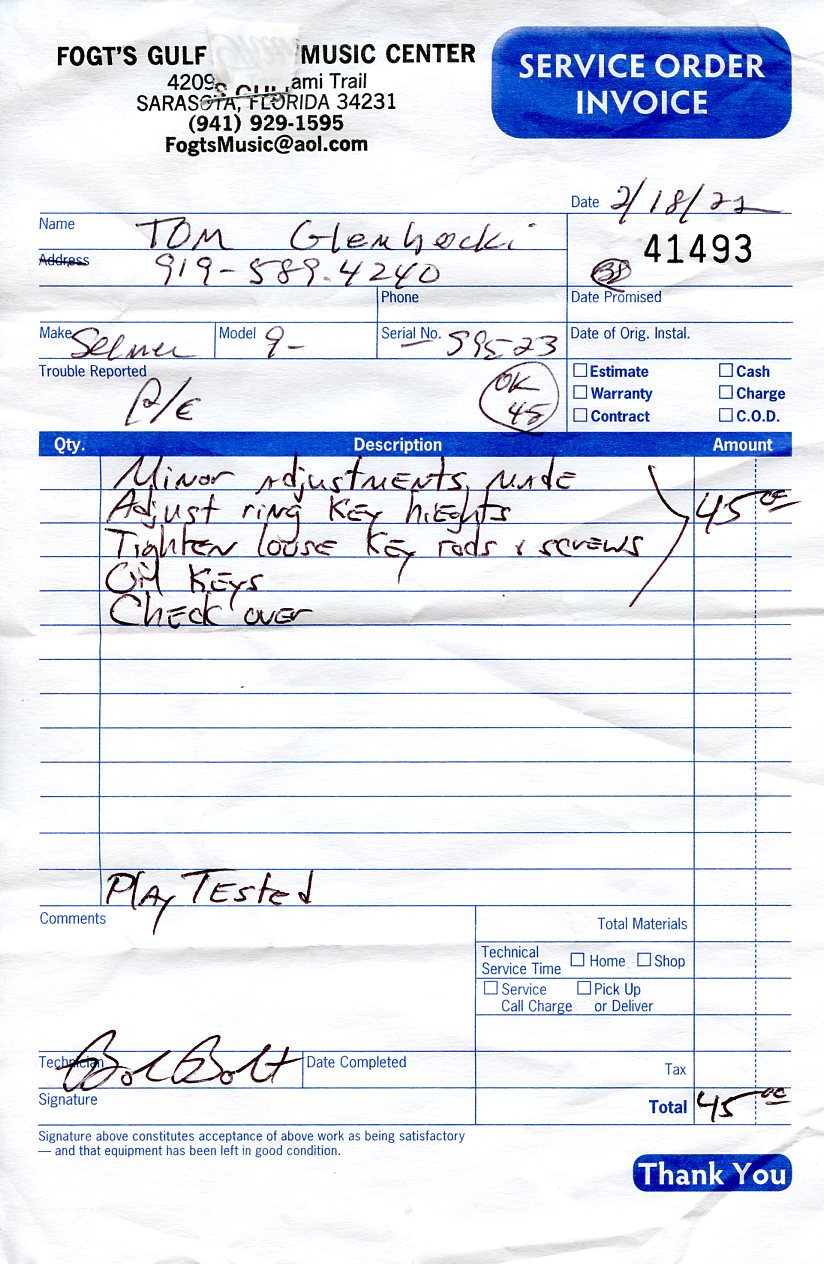 FOGT'S GULF MUSIC CENTER
4209 ami Trail
SARASOTA, FLORIDA 34231
(941) 929-1595
FogtsMusic@aol.com
SERVICE ORDER
INVOICE
Date 2/18/22
Name TOM
41493
Address 919-589-4240
38
Phone
Date Promised
Make Selmer
Model 9-
Serial No. S9523
Date of Orig. Instal.
Trouble Reported
P/E
OK
45
Estimate
Cash
Warranty
Charge
Contract
C.O.D.
Qty. Description Amount
Minor Adjustments Made
Adjust ring Key hieghts 45 00
Tighten loose Key rods & screws
Oil Keys
Check over
Play Tested
Comments
Total Materials
Technical
Service Time
Home
Shop
Service
Call Charge
Pick Up
or Deliver
Technician Bob Bolt
Date Completed
Tax
Signature
Total 45 00
Signature above constitutes acceptance of above work as being satisfactory
— and that equipment has been left in good condition.
Thank You